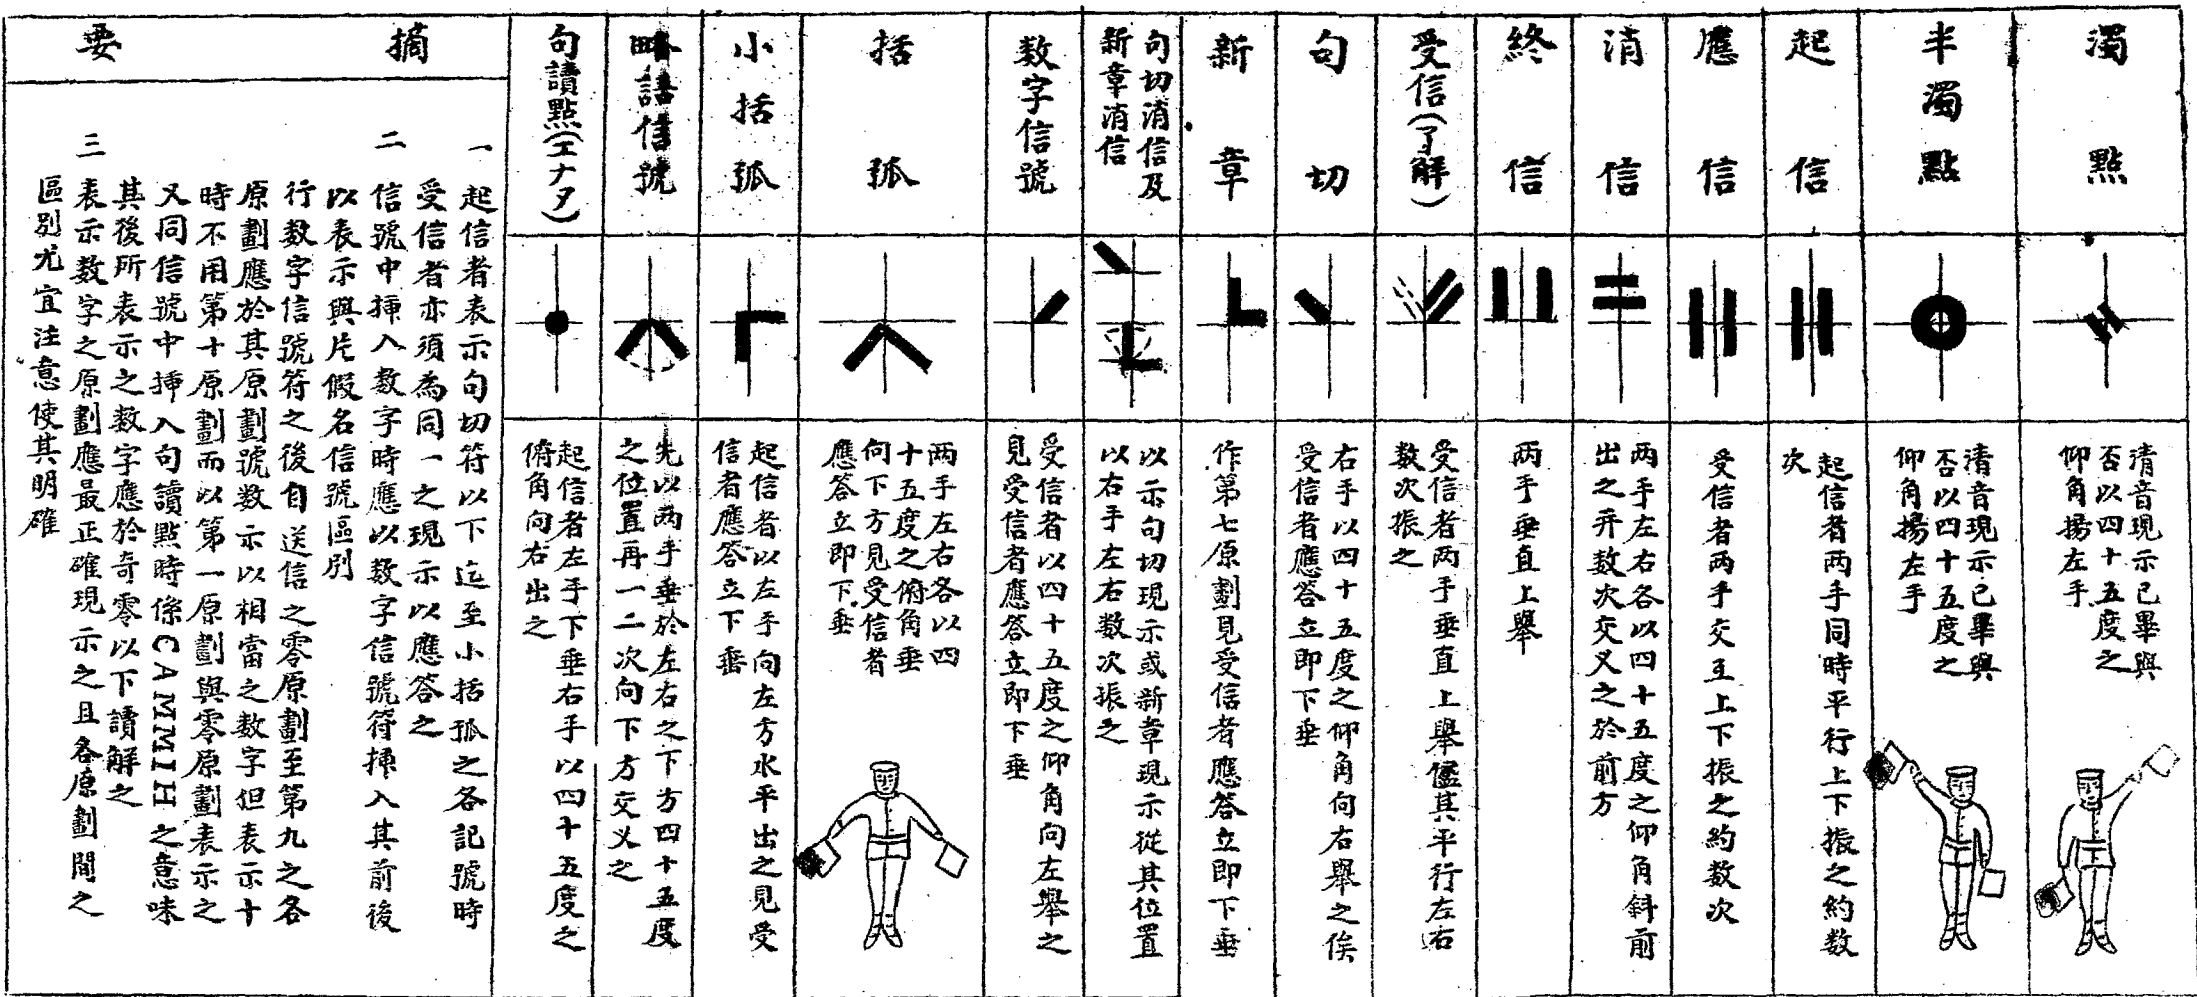 濁點
清音現示已畢與
否以四十五度之
仰角揚左手
半濁點
清音現示已畢與
否以四十五度之
仰角揚左手
起信
起信者两手同時平行上下振之約数
次
應信
受信者两手交互上下振之約数次
消信
两手左右各以四十五度之仰角斜前
出之并数次交叉之於前方
終信
两手垂直上舉
受信(了解)
受信者两手垂直上舉儘其平行左右
数次振之
句切
右手以四十五度之仰角向右舉之俟
受信者應答立即下垂
新章
作第七原劃見受信者應答立即下垂
句切消信及
新章消信
以示句切現示或新章現示從其位置
以右手左右数次振之
数字信號
受信者以四十五度之仰角向左舉之
見受信者應答立即下垂
括弧
两手左右各以四
十五度之俯角垂
向下方見受信者
應答立即下垂
小括弧
起信者以左手向左方水平出之見受
信者應答立下垂
略語信號
先以两手垂於左右之下方四十五度
之位置再一二次向下方交叉之
句讀點(エナタ)
起信者左手下垂右手以四十五度之
俯角向右出之
摘要
一 起信者表示句切符以下迄至小括弧之各記號時
受信者亦須為同一之現示以應答之
二 信號中揷入数字時應以数字信號符揷入其前後
以表示與片假名信號區別
行数字信號符之後自送信之零原劃至第九之各
原劃應於其原劃號数示以相當之数字但表示十
時不用第十原劃而以第一原劃與零原劃表示之
又同信號中揷入句讀點時係CAMMIH之意味
其後所表示之数字應於奇零以下讀解之
三 表示数字之原劃應最正確現示之且各原劃間之
區別尤宜注意使其明確